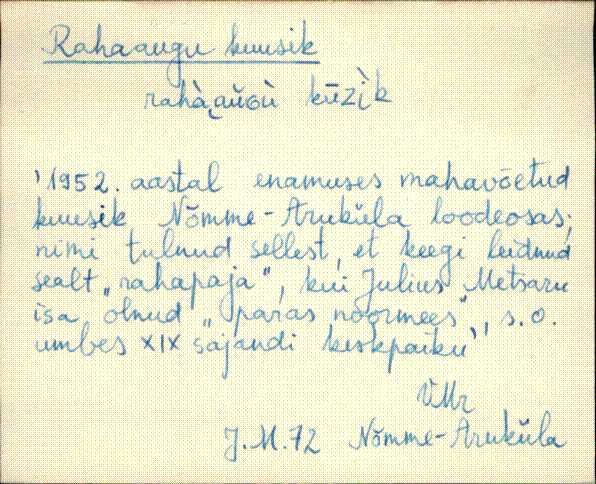 Rahaaugu kuusik
rahà̬ăŭGù kūzìk
'1952. aastal enamuses mahavõetud
kuusik Nõmme-Aruküla loodeosas;
nimi tulnud sellest, et keegi leidnud
sealt „rahapaja", kui Julius Metsaru
isa olnud „paras noormees", s.o.
umbes XIX sajandi keskpaiku'
VMr
J.M.72 Nõmme-Aruküla